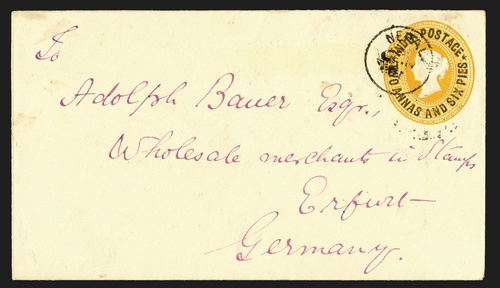 To
Adolph Bauer Esqr.,
Wholesale merchants in Stamps
Erfurt
Germany.
POSTAGE
ANNAS AND SIX PIES